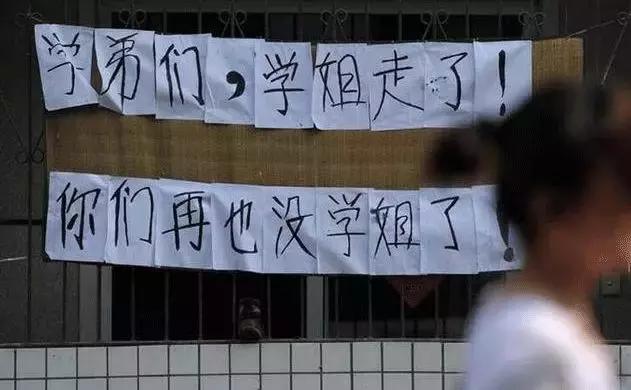 学弟们,学姐走了!
你们再也没学姐了!